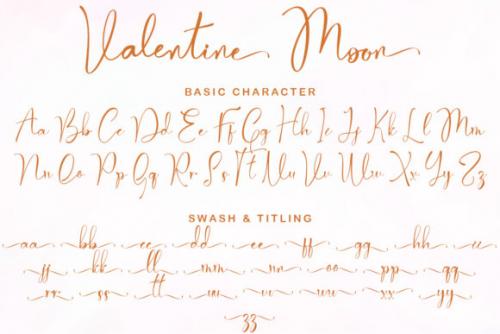 Valentine Moon
BASIC CHARACTER
Aa Bb Cc Dd Ee Ff Gg Hh Ii Jj Kk Ll Mm
Nn Oo Pp Qq Rr Ss Tt Uu Vv Ww Xx Yy Zz
SWASH & TITLING
aa bb cc dd ee ff gg hh ii
jj kk ll mm nn oo pp qq
rr ss tt uu vv ww xx yy
zz